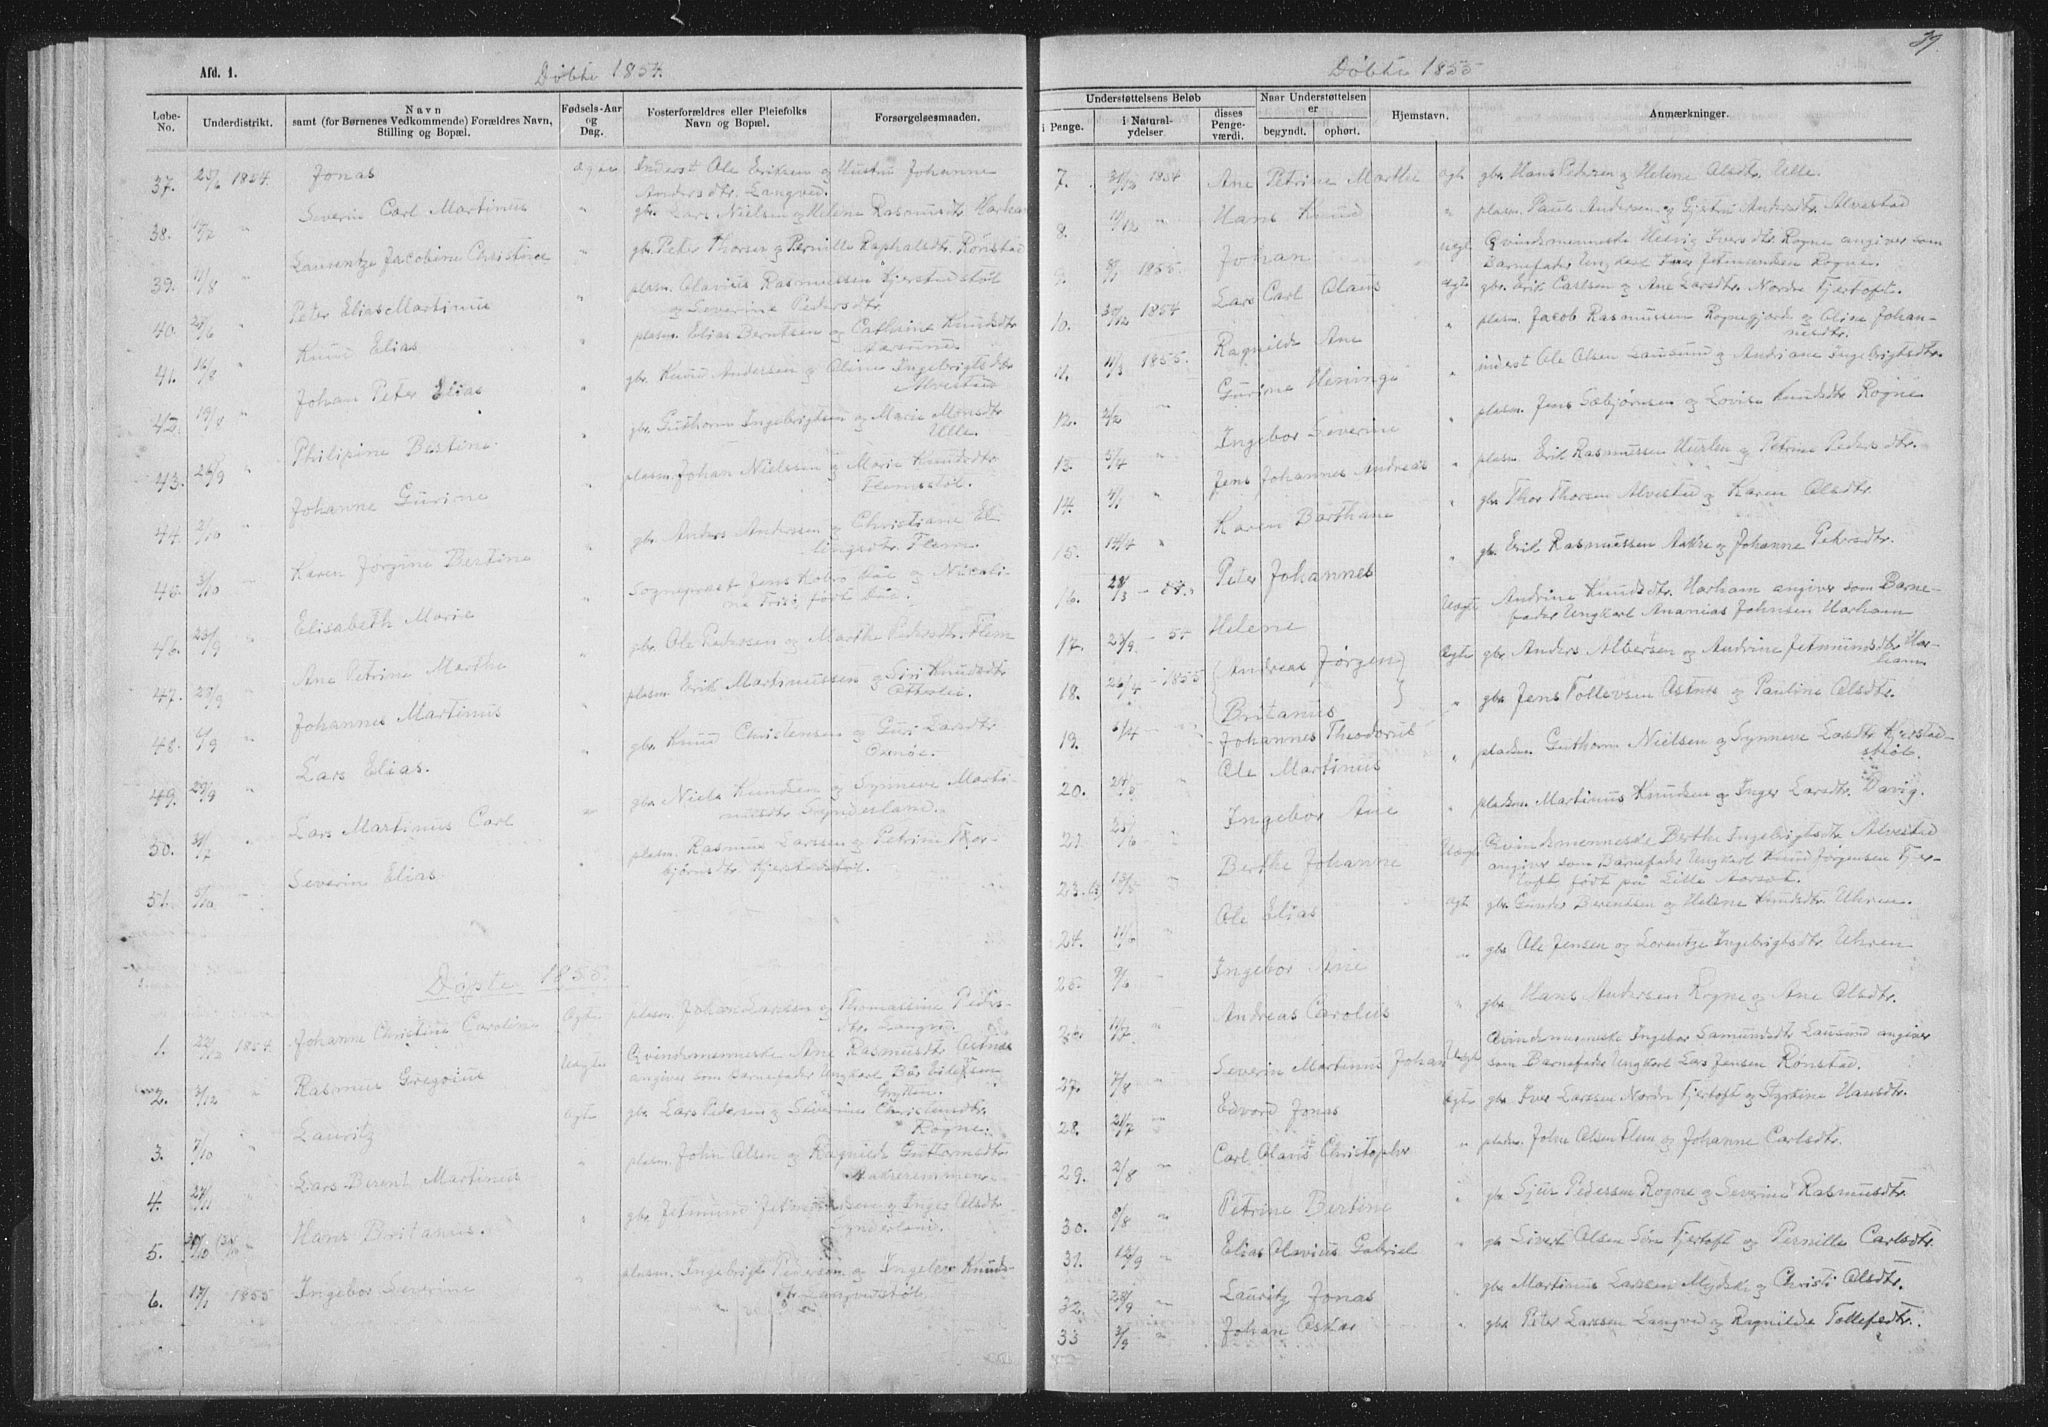 Afd. 1.
Døbte 1854.
Løbe-No.
Underdistrikt.
Navn
samt (for Børnenes Vedkommende) Forældres Navn,
Stilling og Bopæl.
Fødsels-Aar
og
Dag.
Fosterforældres eller Pleiefolks
Navn og Bopæl.
Forsørgelsesmaaden.
37. 25/6 1854. Jonas Ægte Inderst Ole Eriksen og Hustru Johanne
Andersdtr. Langved.
38. 17/7 " Severin Carl Martinus " gbr. Lars Nielsen og Helene Rasmusdtr. Harham
39. 11/8 " Laurentze Jacobine Christine " gbr. Peter Thorsen og Pernille Raphalsdtr. Rønstad
40. Peter Elias Martinus " plasm. Olavius Rasmussen Kjerstadstøl
og Severine Pedersdtr.
41. 16/8 " Knud Elias " plasm. Elias Berntsen og Cathrine Knudsdtr.
Aarsund.
42. 19/8 " Johan Peter Elias " gbr. Knud Andersen og Aline Ingebrigtsdtr.
Alvestad
43. 26/9 " Philipine Bestine " gbr. Guthorm Ingebrigtsen og Marie Monsdtr.
Ulle.
44. 2/10 " Johanne Gurine " plasm. Johan Nielssen og Marie Knudsdtr.
Flemsstøl.
45. 3/10 " Karen Jørgine Bertine " gbr. Anders Andersen og Christiane El-
lingsdtr. Flem.
46. 23/9 " Elisabeth Marie " Sogneprest Jens Kobro Daae og Nicoli-
ne Friis, født Daae.
47. 23/9 " Ane Petrine Marthe " gbr. Ole Pedersen og Marthe Pedersdtr. Flem
48. 6/9 " Johannes Martinus " plasm. Erik Martinussen og Siri Knudsdtr.
Otterlei.
49. 29/9 " Lars Elias. " gbr. Knud Christensen og Guri Larsdtr.
Oxnøe.
50. 31/7 " Lars Martinus Carl " gbr. Niels Knudsen og Synneve Marti-
nusdtr. Synderland.
51. 5/10 Severin Elias " plasm. Rasmus Larssen og Petrine Thor-
bjørnsdtr. Kjerstadstøl.
Døpte 1855.
1. 22/12 1854. Johanne Christine Caroline Ægte plasm. Johan Larssen og Thomassine Peders-
dtr. Langved.
2. 3/12 " Rasmus Gregoius Uægte Qvindemenneske Ane Rasmusdtr. Astnæs
angiver som Barnefader Ungkarl Bår Eilefsen
Grytten.
3. 7/10 " Lauritz Ægte gbr. Lars Pedersen og Severine Christensdtr.
Rogne.
4. 27/11 Lars Berent Martinus " plasm. John Olsen og Ragnild Guttormsdtr.
Aakreremmen.
5. Hans Britanus. " gbr. Jetmund Jetmundsen og Inger Olsdtr.
Synderland.
6. 17/1 1855 Ingebor Severine " plasm. Ingebrigt Pedersen og Ingebor Knuds-
dtr. Langvedstøl.
39.
Døbte 1855
Understøttelsens Beløb
i Penge.
i Natural-
ydelser
disses
Penge-
værdi.
Naar Understøttelsen
er
begyndt.
ophørt.
Hjemstavn.
Anmærkninger.
7. 31/12 1854 Ane Petrine Marthe Ægte gbr. Hans Pedersen og Helene Olsdtr. Ulle.
8. 11/12 " Hans Knud " plasm. Paul Andersen og Gjertru Andersdtr. Alvestad
9. 8/1 1855. Johan Uægt. Qvindemenneske Helvig Iversdtr. Rogne angiver som
Barnefader Ungkarl Iver Jetmundsen Rogne.
10. 30/12 1854 Lars Carl Olaus Ægte gbr. Erik Carlsen og Ane Larsdtr. Nordre Fjertoft.
11. 4/3 1855. Ragnilde Ane " plasm. Jacob Rasmussen Rognegjerde og Oline Johan-
nesdtr.
12. 2/2 " Gurine Heninge " inderst Ole Olsen Lausund og Andriane Ingebrigtsdtr.
13. 5/4 " Ingebor Severine " plasm. Jens Sæbjørnsen og Lovise Knudsdtr. Rogne
14. 4/1 " Jens Johannes Andreas " plasm. Erik Rasmussen Huslen og Petrine Pedersdtr.
15. 14/4 " Karen Barthane " gbr. Thor Thorsen Alvestad og Karen Olsdtr.
16. 28/3 Peter Johannes " gbr. Erik Rasmussen Aakre og Johanne Petersdtr.
17. 23/9 - 54 Helene Uægte Andrine Knudsdtr. Harham angiver som Barne-
fader Ungkarl Ananias Johnsen Harham
18. 26/4 - 1855 (Andreas Jørgen) Ægte gbr. Anders Albersen og Andrine Jetmundsdtr. Har-
ham
Britanus " gbr. Jens Tollevsen Astnæs og Pauline Olsdtr.
19. 6/4 " Johannes Theodorus " pladsm. Guthorm Nielsen og Synneve Larsdtr. Kjerstad-
støl.
20. Ole Martinus " pladsm. Martinus Knudsen og Inger Larsdtr. Davig.
21. 25/6 " Ingebor Ane Uægte Qvindemenneske Berthe Ingebrigtsdtr. Alvestad
angiver som Barnefader Ungkarl Knud Jørgensen Fjer-
toft, født på Lille Aarset.
23. 15/5 " Berthe Johanne Ægt. gbr. Gunder Berentsen og Helene Knudsdtr. Uhren.
24. 11/6 " Ole Elias " gbr. Ole Jensen og Lorentze Ingebrigtsdtr. Uhren
25. 9/6 Ingebor Ane " gbr. Hans Andersen Rogne og Ane Olsdtr.
26. 11/7 " Andreas Carolus Qvindemenneske Ingebor Samundsdtr. Lausund angiver
som Barnefader Ungkarl Lars Jensen Rønstad.
27. 7/8 " Severin Martinus Johan Uægt.
28. 21/7 " Edvard Jonas Ægte gbr. Iver Larssen Nordre Fjertoft og Styrtine Hansdtr.
29. 2/8 " Carl Olavis Christopher " pladsm. John Olsen Flem og Johanne Carlsdtr.
30. 8/8 " Petrine Bertine " gbr. Sjur Pedersen Rogne og Severine Rasmusdtr.
31. 12/9 " Elias Olavius Gabriel " gbr. Sivert Olsen Søre Fjertoft og Pernille Carlsdtr.
32. 28/9 " Lauritz Jonas gbr. Martinus Larssen Myklebr. og Christi Olsdtr.
33 3/9 " Johan Oskar " gbr. Peter Larssen Langved og Ragnilde Tollefsdtr.